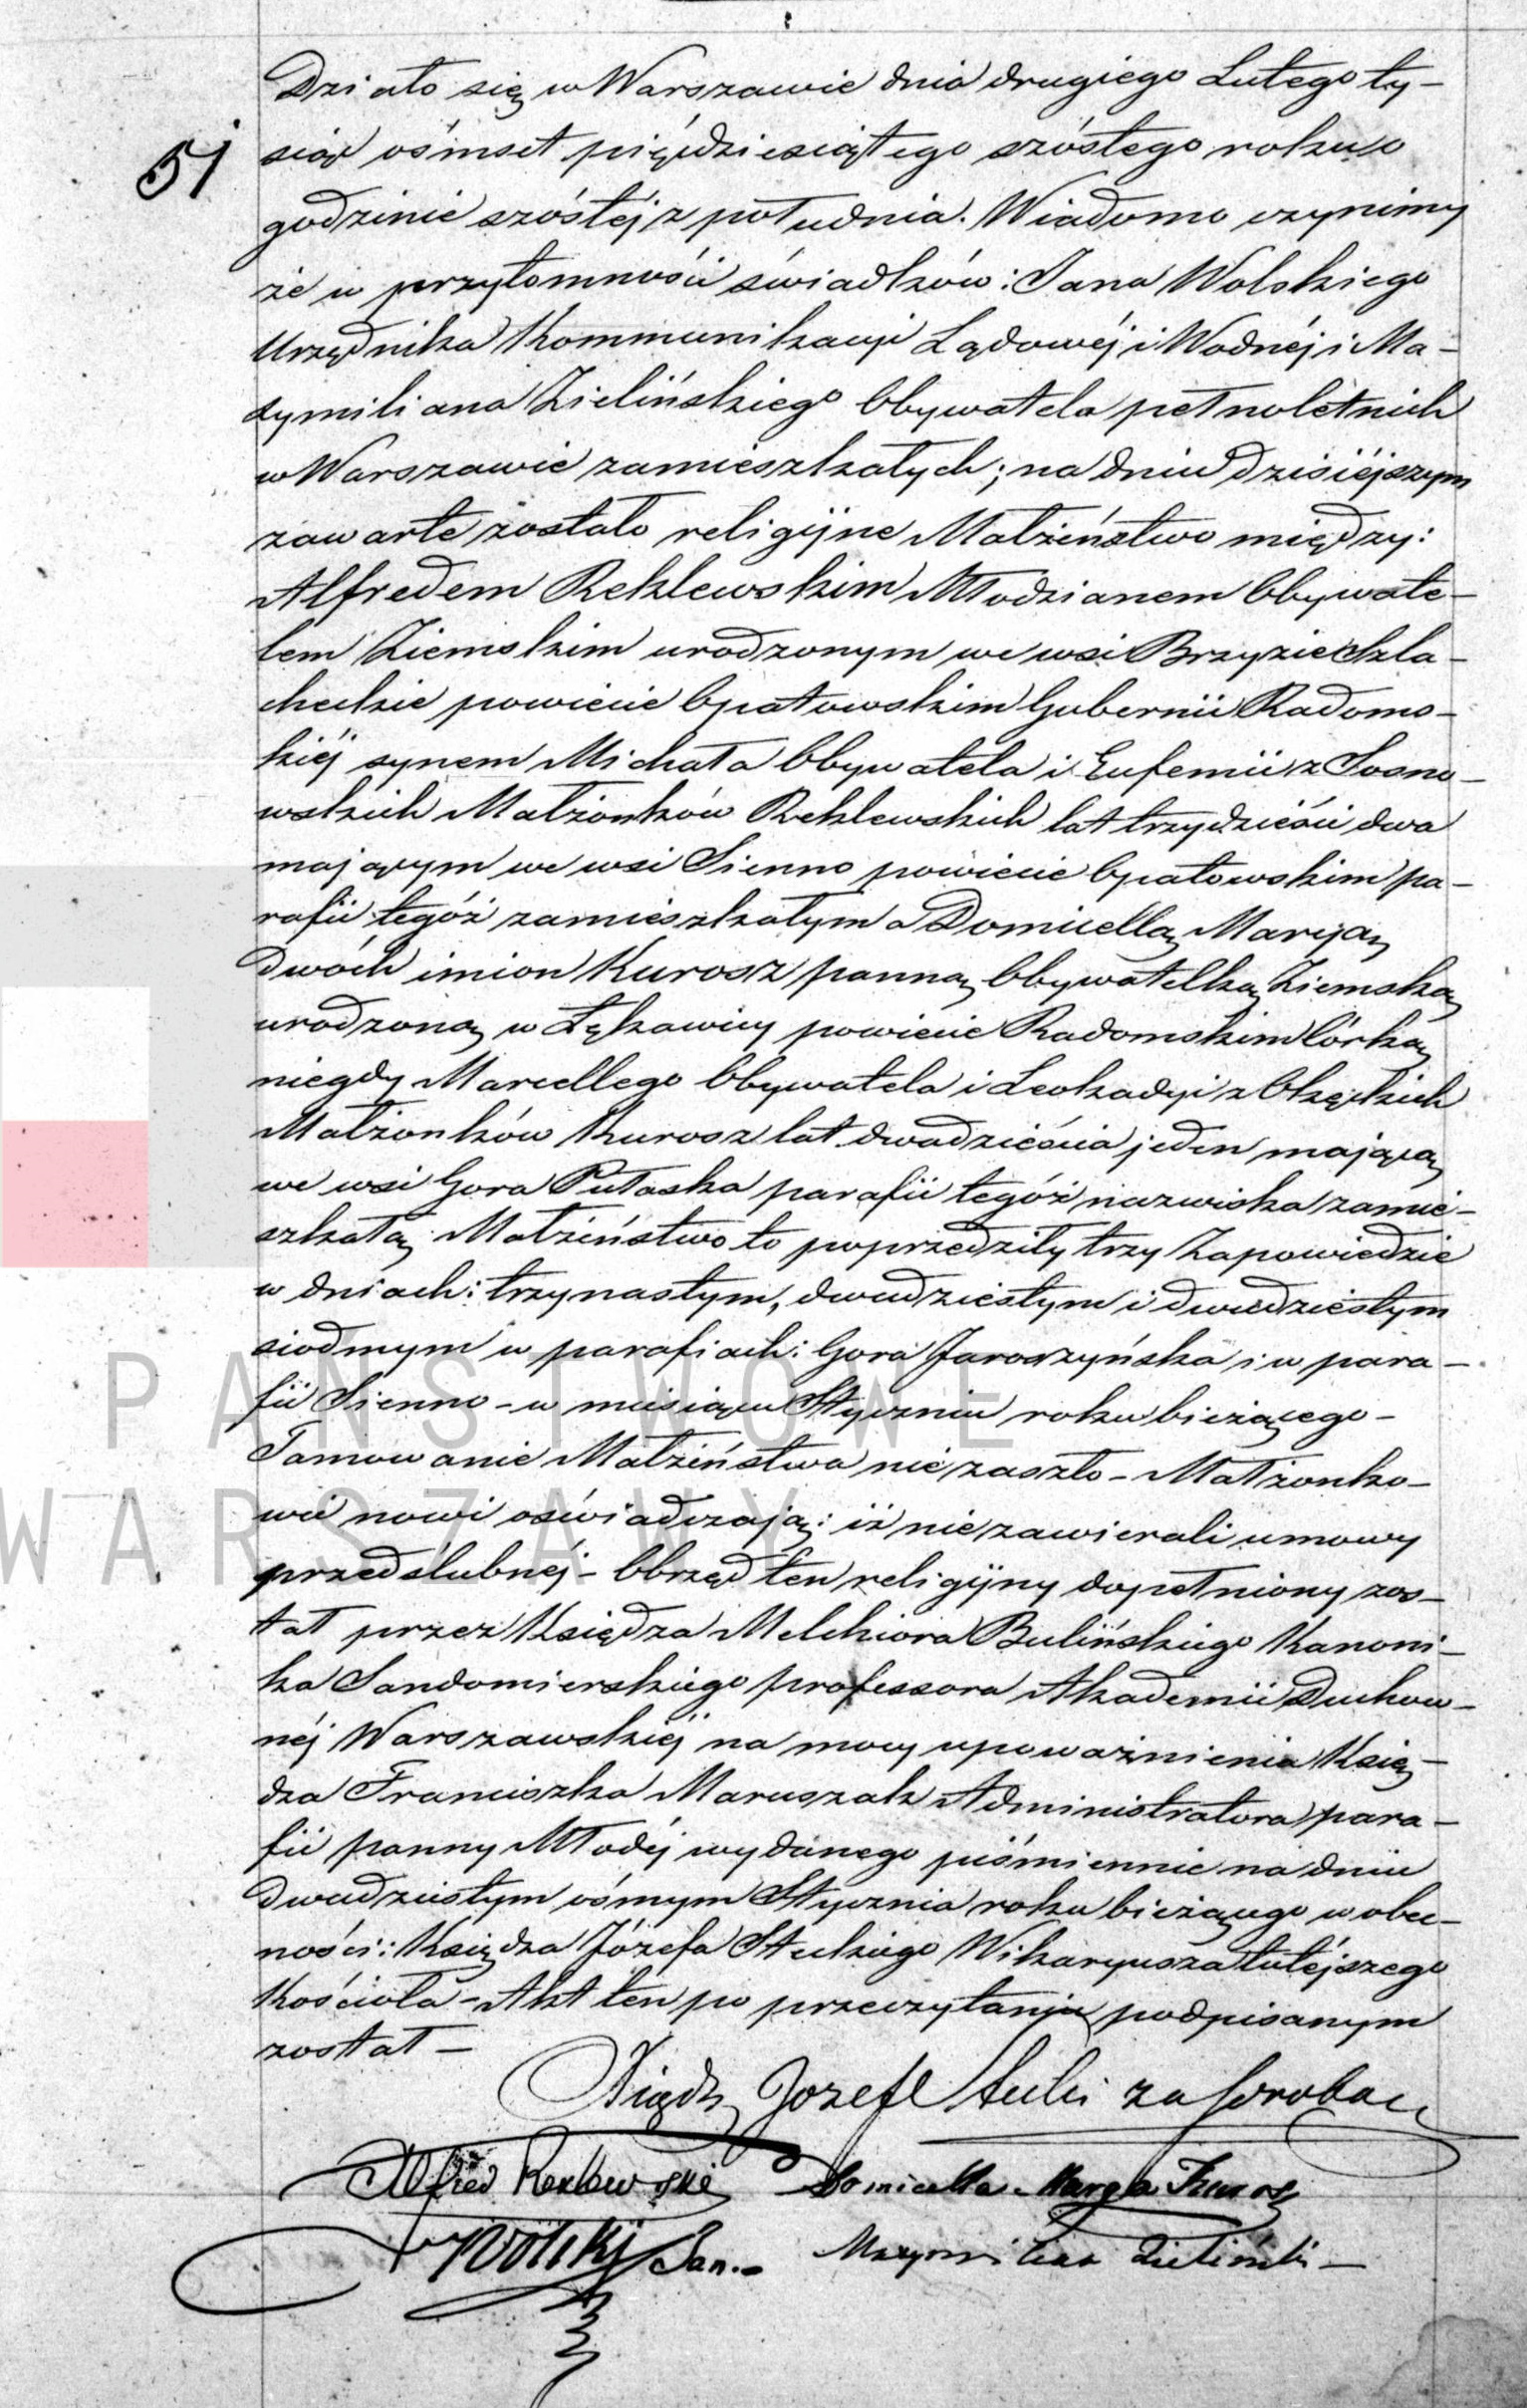 51
Działo się w Warszawie dnia drugiego Lutego ty-
siąc ośmset pięćdziesiątego szóstego roku o
godzinie szóstéj z południa. Wiadomo czynimy
że w przytomności świadków: Jana Wolskiego
Urzędnika Kommunikacyi Lądowéj i Wodnéj i Ma-
xymiliana Zielińskiego Obywatela pełnoletnich
w Warszawie zamieszkałych; na dniu dzisiéjszym
zawarte zostało religijne Małżeństwo między:
Alfredem Reklewskim Młodzianem Obywate-
lem Ziemskim urodzonym we wsi Brzyzie Szla-
checkie powiecie Opatowskim Gubernii Radoms-
kiéj synem Michała Obywatela i Eufemii z Sosno-
wskich Małżonków Reklewskich lat trzydzieści dwa
mającym we wsi Sienno powiecie Opatowskim pa-
rafii tegóż zamieszkałym a Domicellą Maryją
dwóch imion Kurosz panną Obywatelką Ziemską
urodzoną w Łękawicy powiecie Radomskim Córką
niegdy Marcellego Obywatela i Leokadyi z Okęckich
Małżonków Kurosz lat dwadzieścia jeden mającą
we wsi Gora Pułaska parafii tegóż nazwiska zamie-
szkałą. Małżeństwo to poprzedziły trzy Zapowiedzie
w dniach: trzynastym, dwudziestym i dwudziestym
siodmym w parafiach: Gora Jaroszyńska i w para-
fii Sienno - w miesiącu Styczniu roku bieżącego -
Tamowanie Małżeństwa nie zaszło - Małżonko-
wie nowi oświadczają: iż nie zawierali umowy
przedślubnéj - Obrząd ten religijny dopełniony zos-
tał przez Księdza Melchiora Bulińskiego Kanoni-
ka Sandomierskiego professora Akademii Duchow-
néj Warszawskiéj na mocy upoważnienia Księ-
dza Franciszka Maruszak Administratora para-
fii panny Młodéj wydanego piśmiennie na dniu
dwudziestym ósmym Stycznia roku bieżącego w obec-
ności: Księdza Józefa Steckiego Wikaryusza tutéjszego
Kościoła - Akt ten po przeczytaniu podpisanym
został -
Xiądz Jozef Stecki za Proboszcz
Alfred Reklewski Domicella Marya Kurosz
Wolski Jan. Maxymilian Zieliński
PAŃSTWOWE
WARSZAWY